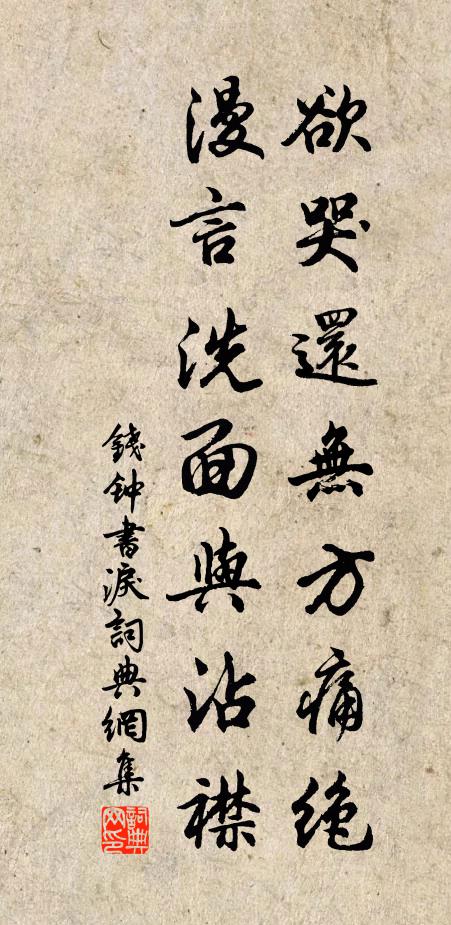 欲哭還無方痛絶
漫言洗面與沾襟
錢钟書淚詞典網集
詞典网印